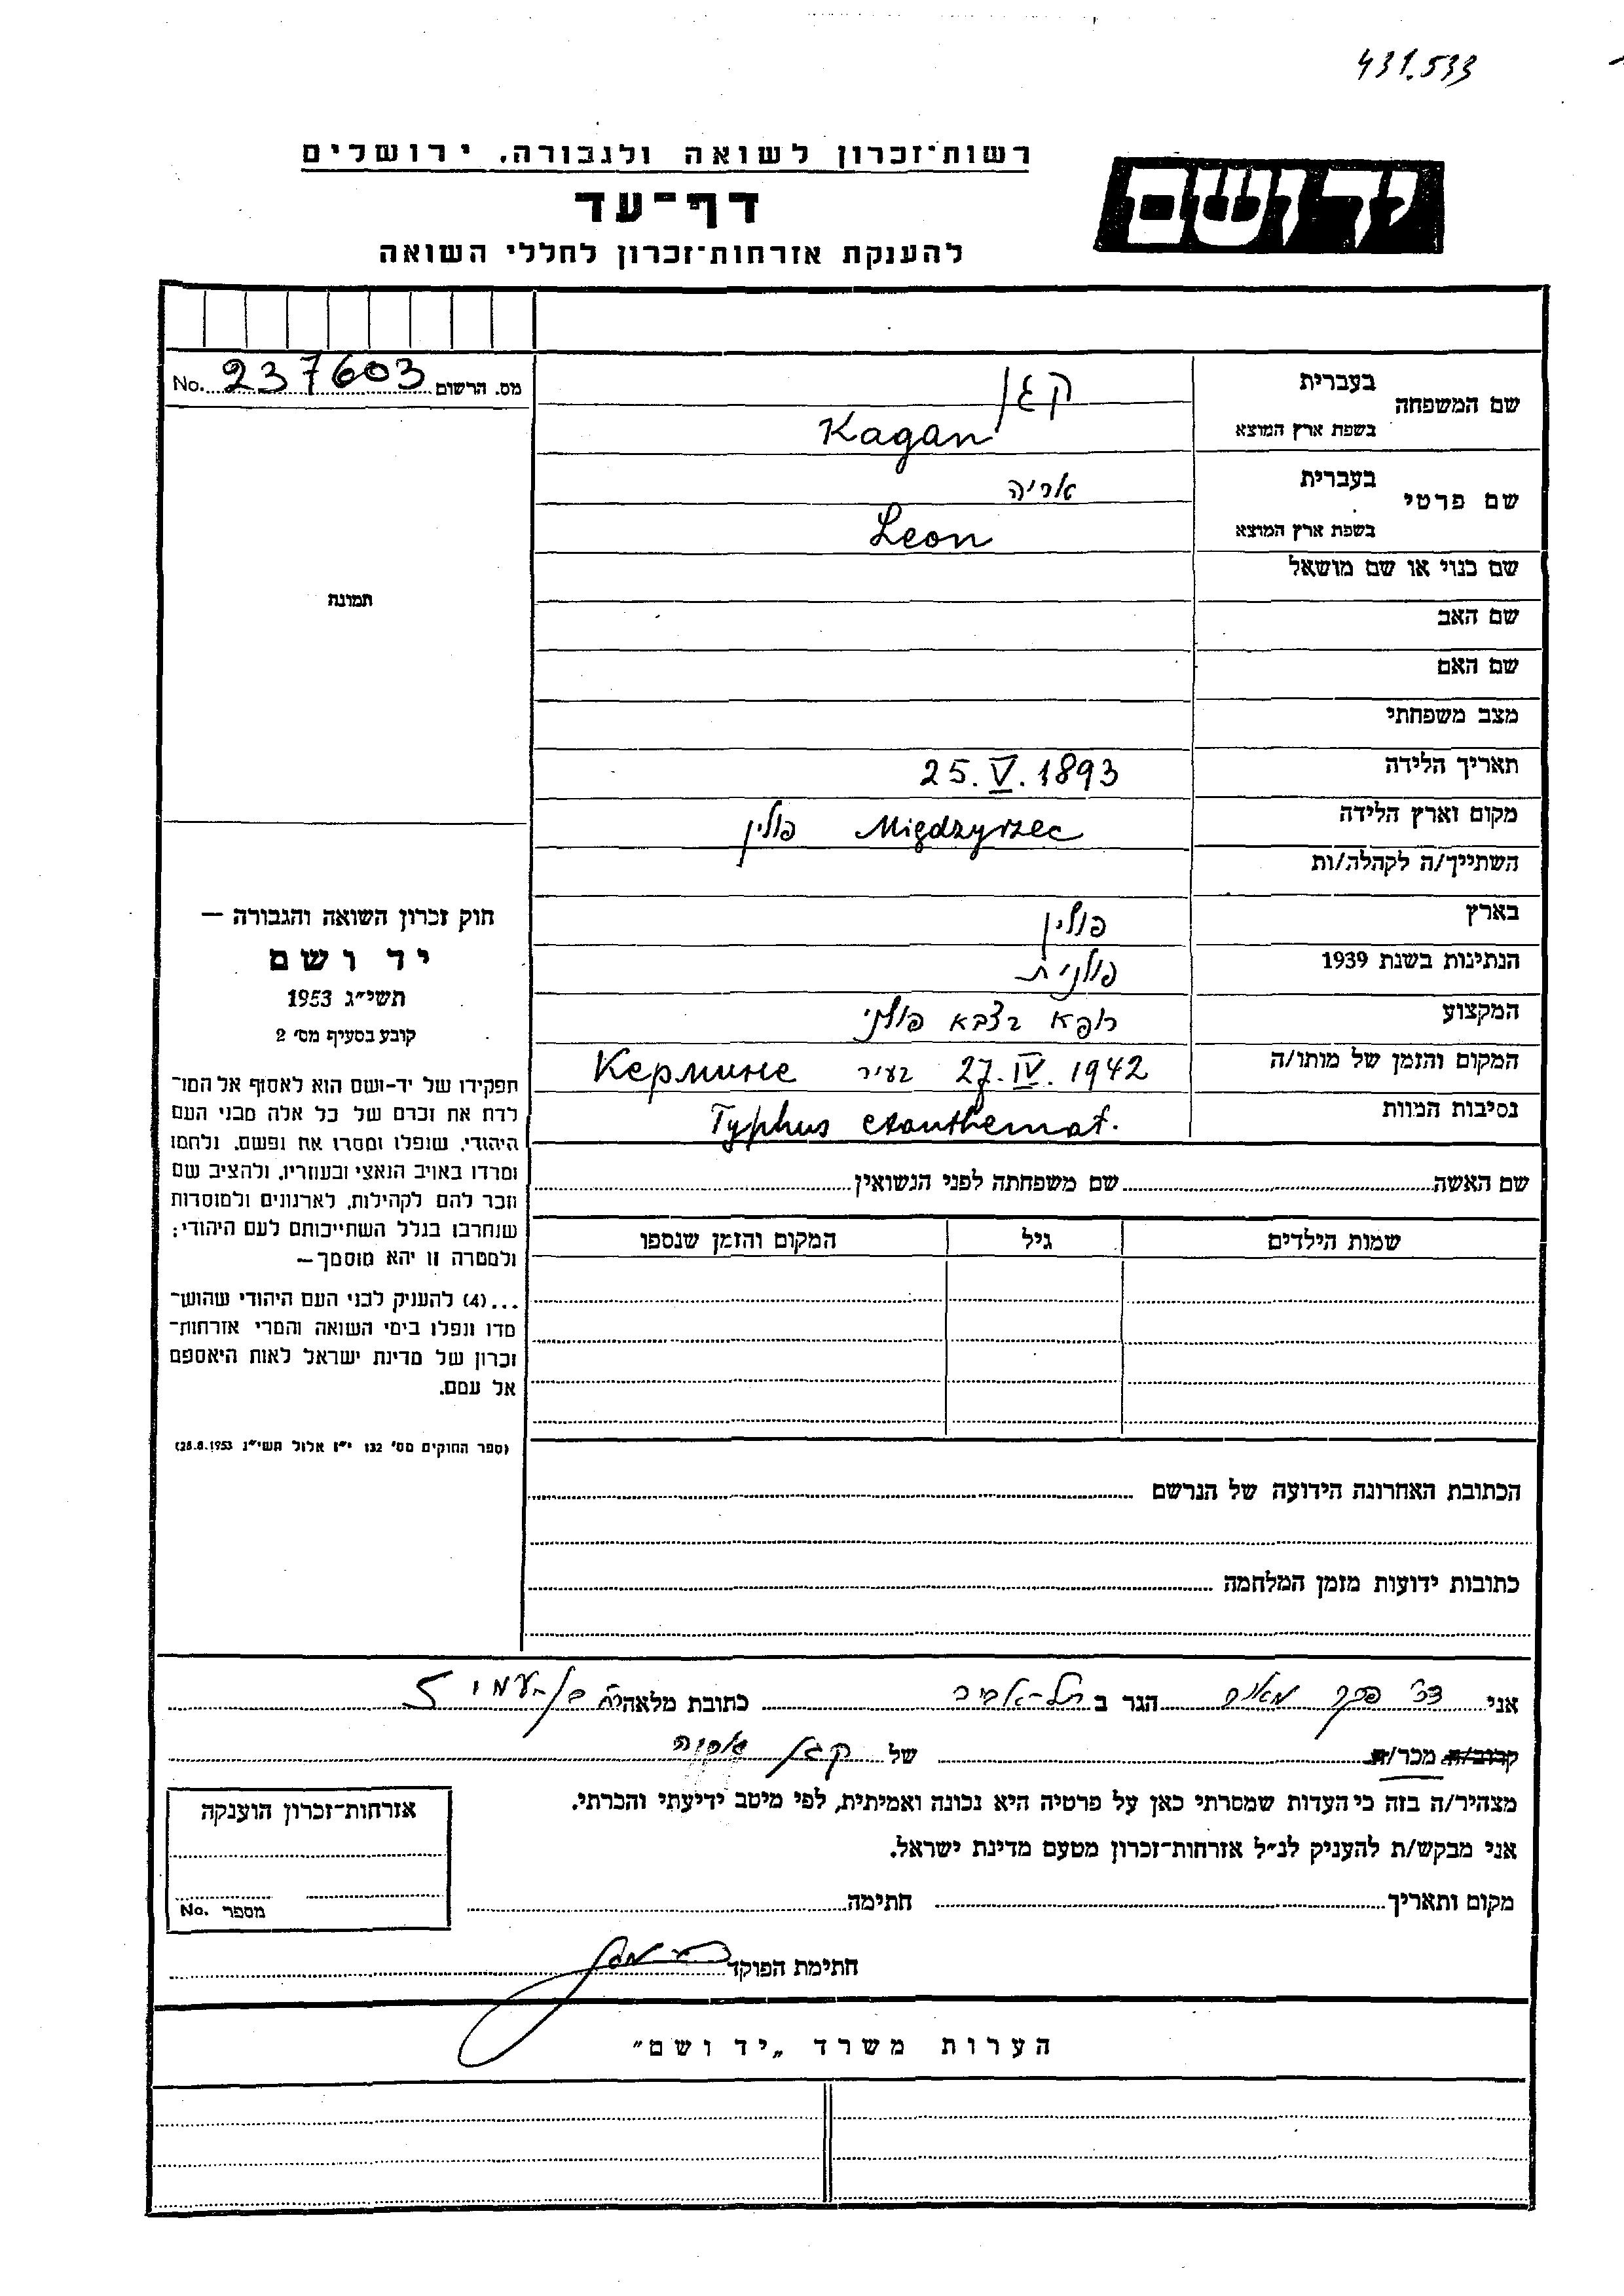 431.533
רשות־זכרון לשואה ולגבורה, ירושלים
יד ושם
דף־עד
להענקת אזרחות־זכרון לחללי השואה
שם המשפחה בעברית קגן
בשפת ארץ המוצא Kagan
שם פרטי בעברית אריה
בשפת ארץ המוצא Leon
שם כנוי או שם מושאל
שם האב
שם האם
מצב משפחתי
תאריך הלידה 25.V.1893
מקום וארץ הלידה Międzyrzec פולין
השתייך/ה לקהלה/ות
בארץ פולין
הנתינות בשנת 1939 פולנית
המקצוע רופא בצבא פולני
המקום והזמן של מותו/ה 27.IV.1942 בעיר Кермине
נסיבות המוות Typhus exanthemat.
שם האשה שם משפחתה לפני הנשואין
שמות הילדים גיל המקום והזמן שנספו
הכתובת האחרונה הידועה של הנרשם
כתובות ידועות מזמן המלחמה
מס. הרשום No. 237603
תמונה
חוק זכרון השואה והגבורה —
יד ושם
תשי״ג 1953
קובע בסעיף מס׳ 2
תפקידו של יד-ושם הוא לאסוף אל המו־
לדת את זכרם של כל אלה מבני העם
היהודי, שנפלו ומסרו את נפשם, נלחמו
ומרדו באויב הנאצי ובעוזריו, ולהציב שם
וזכר להם לקהילות, לארגונים ולמוסדות
שנחרבו בגלל השתייכותם לעם היהודי;
ולמטרה זו יהא מוסמך —
...(4) להעניק לבני העם היהודי שהושׁ־
מדו ונפלו בימי השואה והמרי אזרחות־
זכרון של מדינת ישראל לאות היאספם
אל עמם.
(ספר החוקים מס׳ 132 י״ז אלול תשי״ג 28.8.1953)
אני ד״ר מאיר הגר ב תל-אביב כתובת מלאה בן-עמי 5
קרוב/ה מכר/ת של קגן אריה
מצהיר/ה בזה כי העדות שמסרתי כאן על פרטיה היא נכונה ואמיתית, לפי מיטב ידיעתי והכרתי.
אני מבקש/ת להעניק לנ״ל אזרחות־זכרון מטעם מדינת ישראל.
מקום ותאריך חתימה
חתימת הפוקד
אזרחות־זכרון הוענקה
מספר No.
הערות משרד „יד ושם״